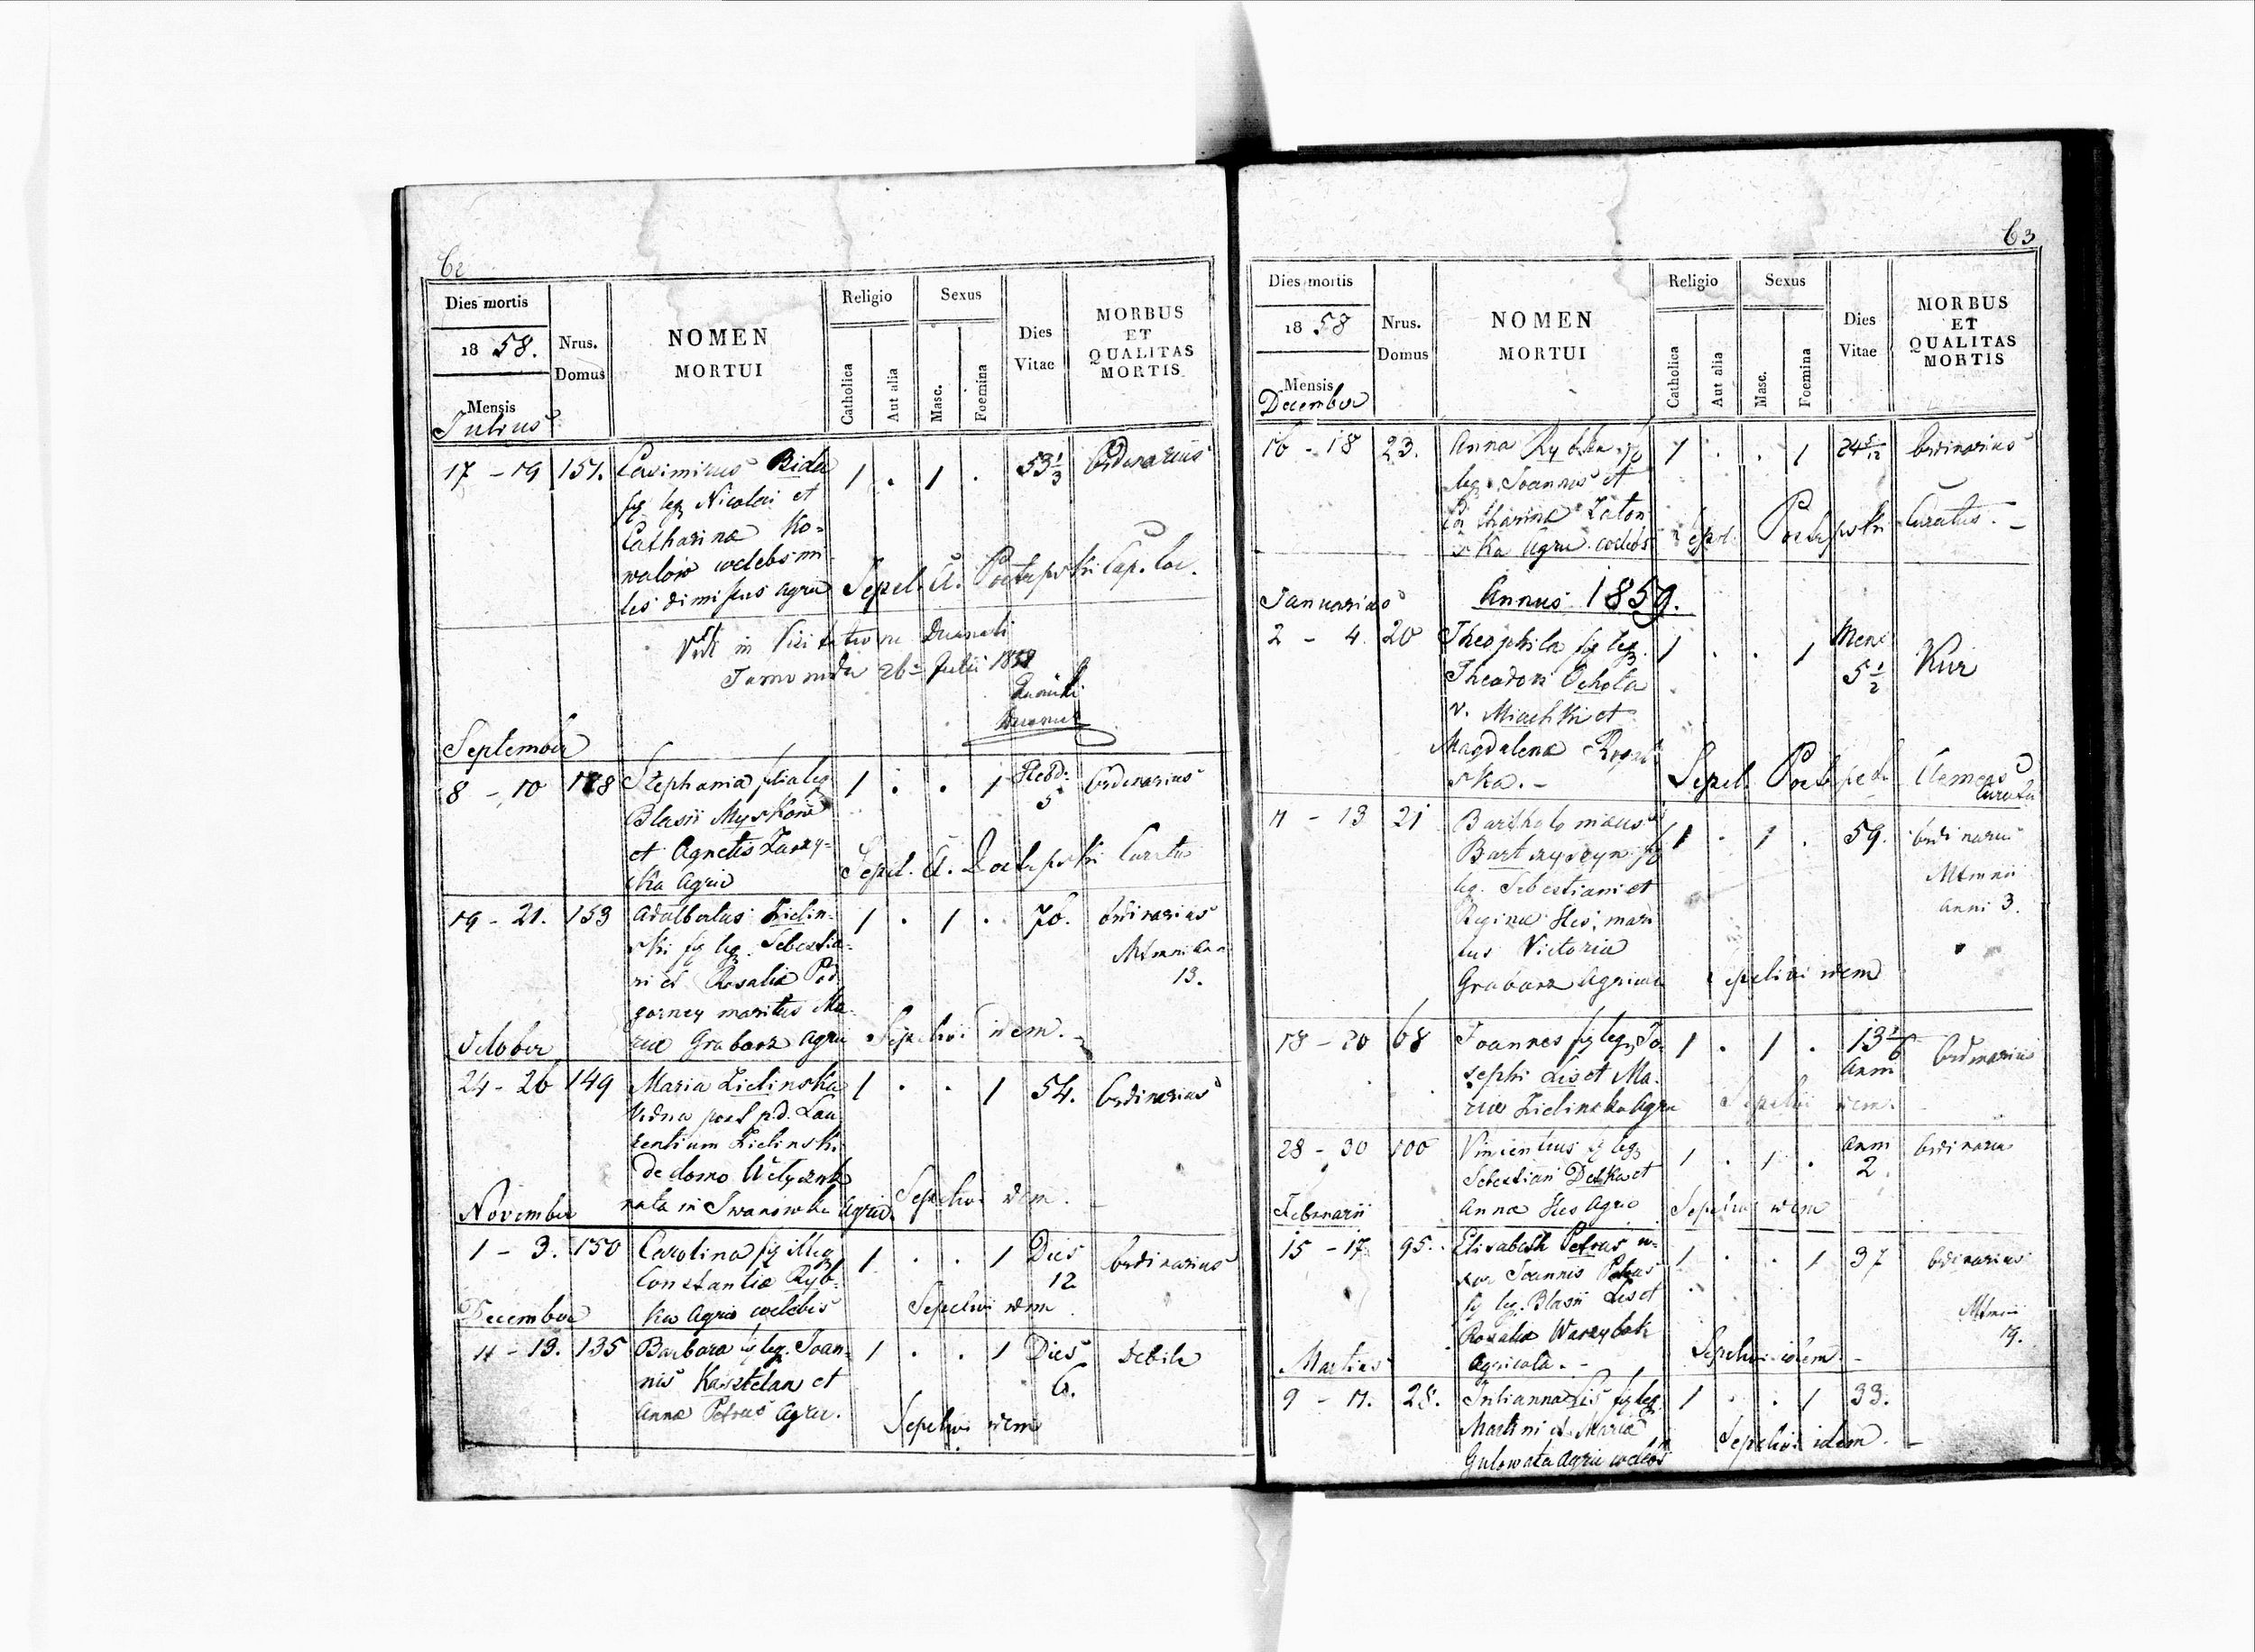 62
Dies mortis
18 58.
Mensis
Julius
Nrus.
Domus
NOMEN
MORTUI
Religio
Catholica
Aut alia
Sexus
Masc.
Foemina
Dies
Vitae
MORBUS
ET
QUALITAS
MORTIS
17 - 19 157. Casimirus Bida 1 . 1 . 53 1/3 Ordinarius
fil leg Nicolai et
Catharina Ko-
walow coelebs mi-
les dimissus agric Sepel. A. Cap. loc.
Vidi in Visitatione Decanali
26 Julii 1858
September
8 - 10 178 Stephania filia leg 1 . . 1 Hebd. 5 Ordinarius
Blasii Myskow
et Agnetis
ska Agric Sepel. A. Curatus
19 - 21. 153 Adalbertus Zielin- 1 . 1 . 76. Ordinarius
ski fil leg. Sebestia-
ni et Rosalia Pod- 13.
gorney maritus Ma-
ria Grabarz Agric Sepelivi idem.
October
24 - 26 149 Maria Zielinska 1 . . 1 54. Ordinarius
Vidua post p.d. Lau-
rentium Zielinski
de domo
nata in Iwanowka Agric. Sepelivi idem.
November
1 - 3. 150 Carolina fil illeg 1 . . 1 Dies 12 Ordinarius
Constantia Ryb-
ka Agric coelebis Sepelivi idem
December
11 - 13. 135 Barbara fil leg. Joan- 1 . . 1 Dies 6. Debilis
nis Kasztelan et
Anna Petras Agric. Sepelivi idem
63
Dies mortis
18 58
Mensis
December
Nrus.
Domus
NOMEN
MORTUI
Religio
Catholica
Aut alia
Sexus
Masc.
Foemina
Dies
Vitae
MORBUS
ET
QUALITAS
MORTIS
16 - 18 23. Anna Rybka fil 1 . . 1 24 5/12 Ordinarius
leg. Joannis et
Catharina Zaton-
ska Agric. coelebs Sepel. Curatus. -
Annus 1859.
Januarius
2 - 4. 20 Theophila fil leg. 1 . . 1 Mens 5 1/2 Kur
Theodori Ochota
v. et
Magdalena
ska. - Sepel. Clemens
Curatus
11 - 13 21 Bartholomaeus 1 . 1 . 59. Ordinarius
fil
leg. Sebestiani et
Regina Hes; mari- Anni 3.
tus Victoria
Grabarz Agricola Sepelivi idem
18 - 20 68 Joannes fil leg Jo- 1 . 1 . 13 1/6 Anni Ordinarius
sephi Lis et Ma-
ria Zielinska Agric Sepelivi idem.
28 - 30 100 Vincentius fil leg 1 . 1 . Anni 2. Ordinarius
Sebestiani Detka et
Anna Hes Agric Sepelivi idem
Februarii
15 - 17. 95. Elisabeth Petras u- 1 . . 1 37 Ordinarius
xor Joannis Petras
fil leg. Blasii Lis et
Rosalia 19.
Agricola. - Sepelivi idem -
Martius
9 - 11. 28. Julianna Lis fil leg 1 . . 1 33.
Martini et Maria Sepelivi idem. -
Agric coelebs